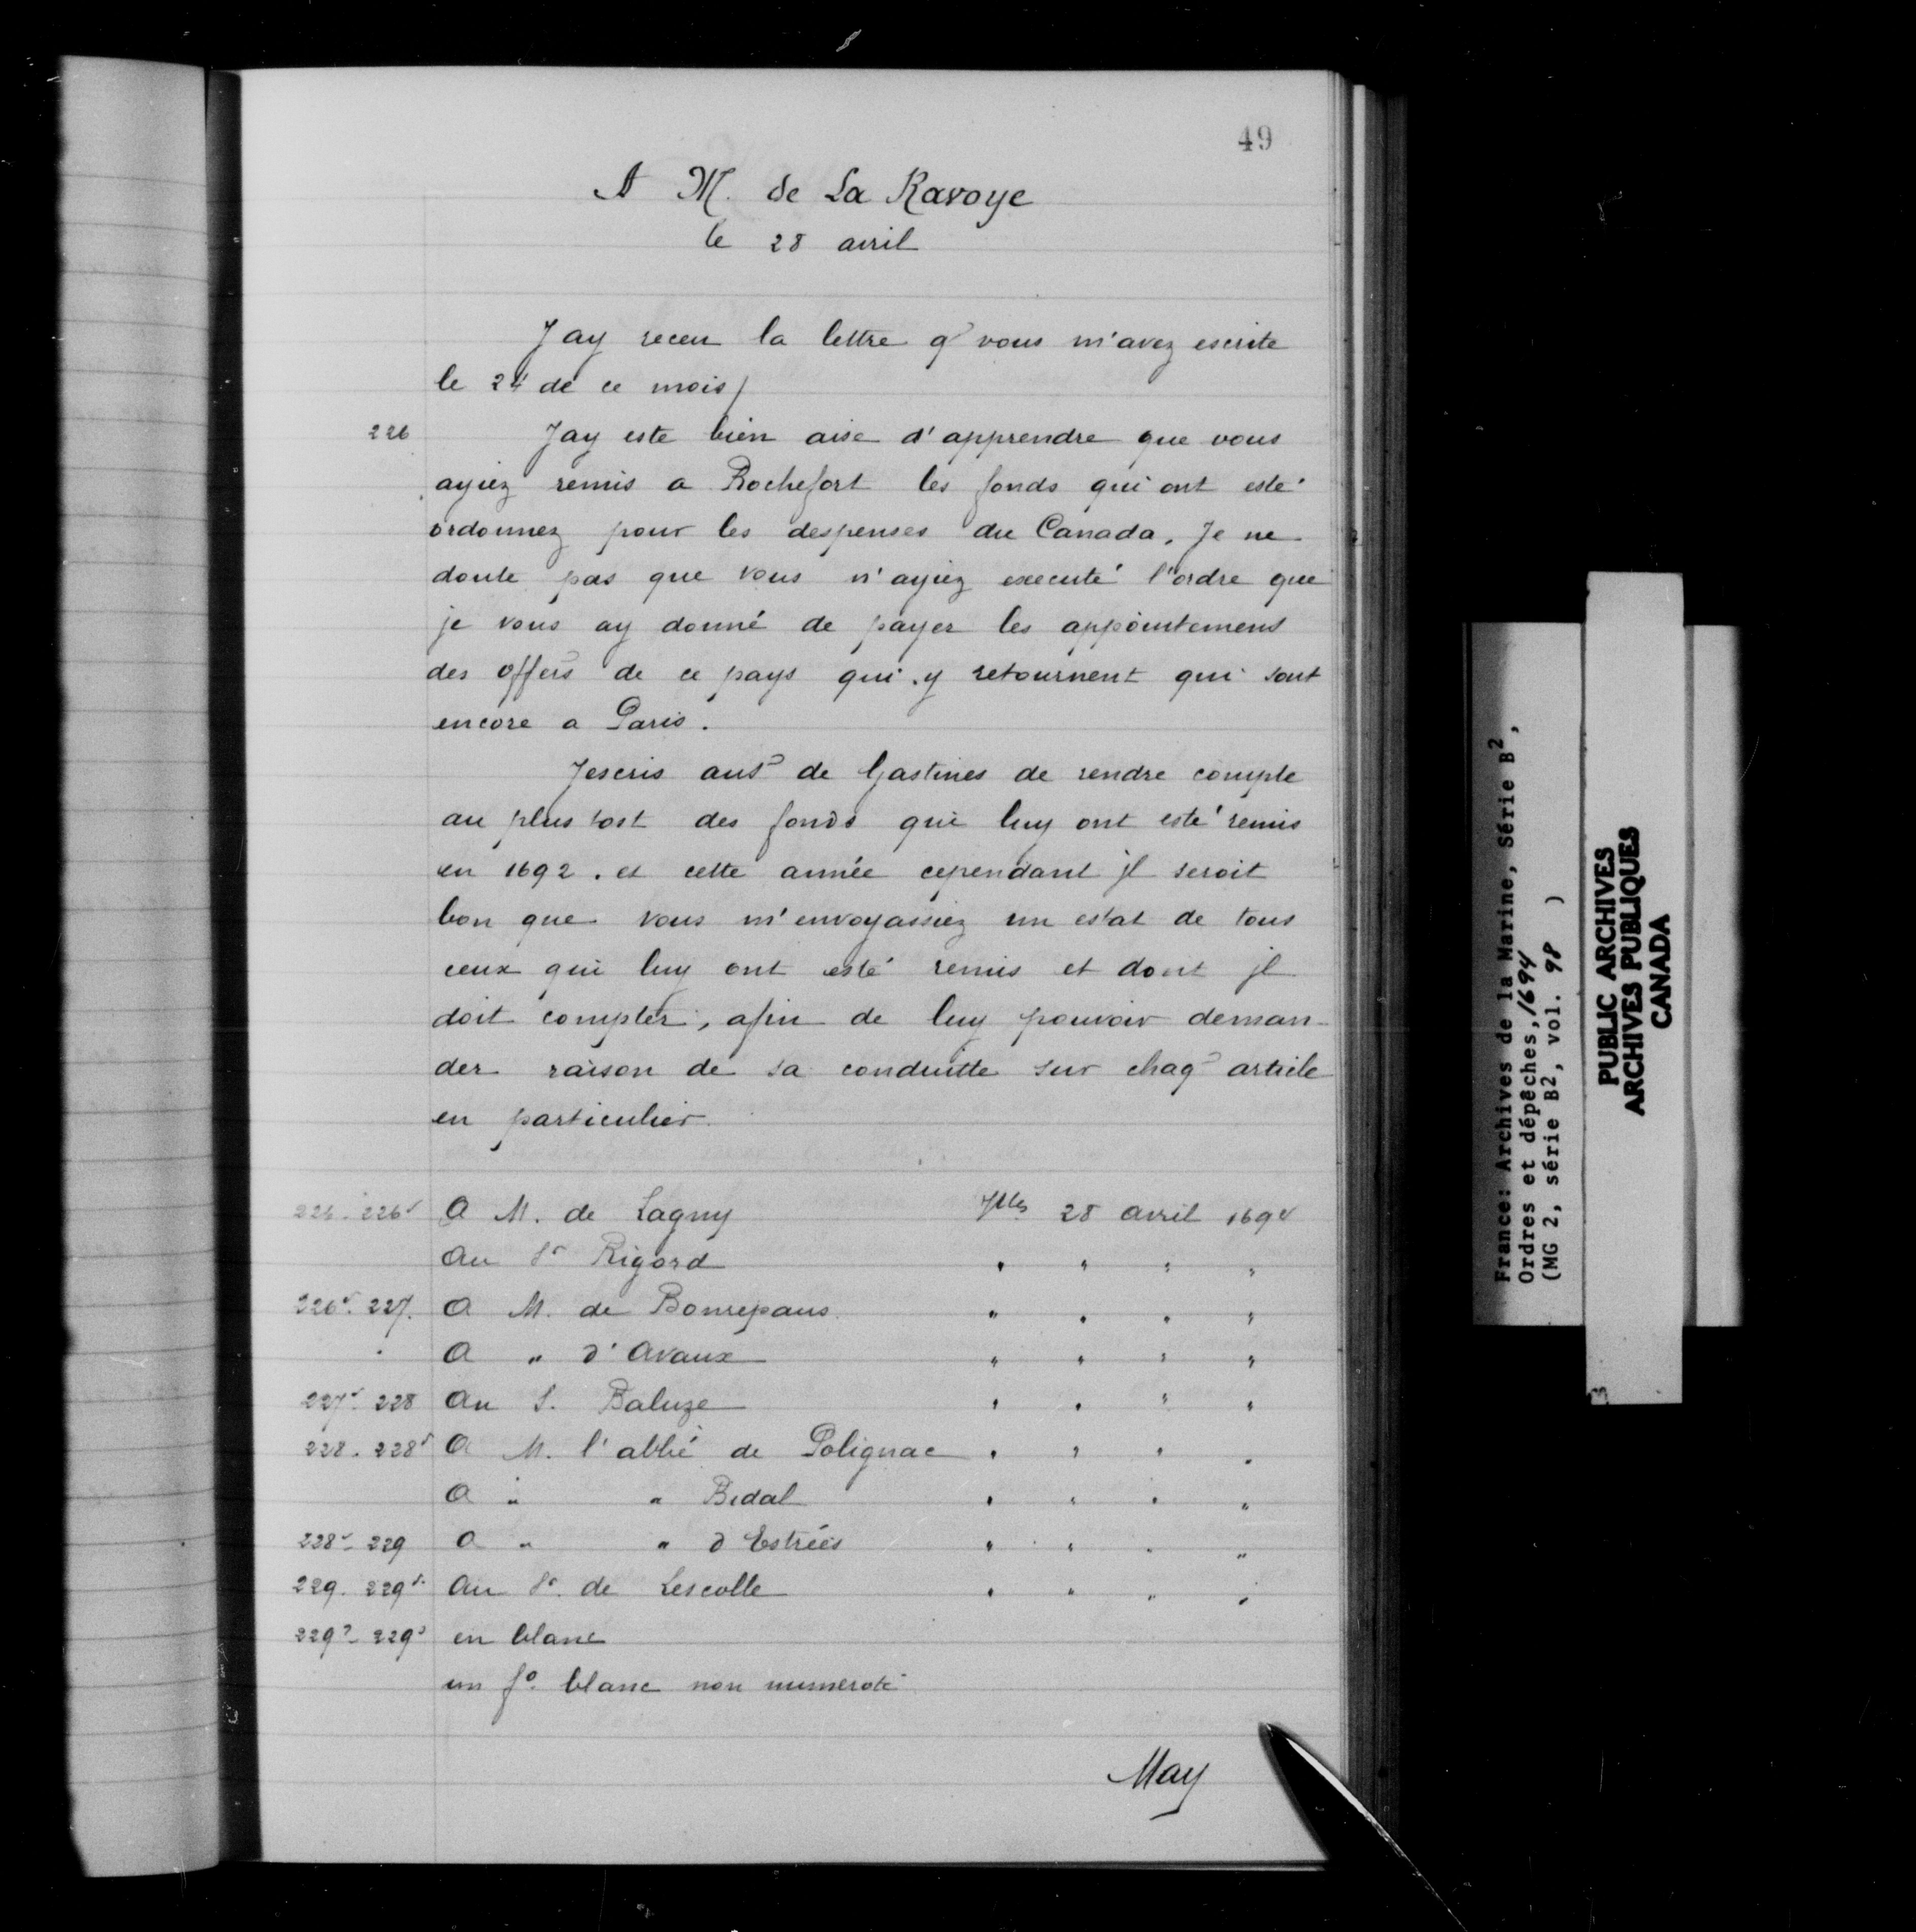 49
A M. de La Ravoye
le 28 avril
Jay receu la lettre q̃ vous m'avez escrite
le 24 de ce mois /
226 Jay este bien aise d'apprendre que vous
ayiez remis a Rochefort les fonds qui ont esté
ordonnez pour les despenses du Canada. Je ne
doute pas que vous n'ayiez executé l'ordre que
je vous ay donné de payer les appointemens
des offers de ce pays qui y retournent qui sont
encore a Paris.
Jescris au s de Gastines de rendre compte
au plus tost des fonds qui luy ont esté remis
en 1692. et cette année cependant jl seroit
bon que vous m'envoyassiez un estat de tous
ceux qui luy ont esté remis et dont jl
doit compter, afin de luy pouvoir deman-
der raison de sa conduitte sur chaq article
en particulier
226. 226v A M. de Lagny Vlles 28 avril 1694
Au Sr Rigord " " " "
226v. 227. A M. de Bonrepaus " " " "
" A " d'Avaux " " " "
227v. 228 Au S. Baluze " " " "
228. 228v A M. l'abbé de Polignac " " " "
A " " Bidal " " " "
228v- 229 A " " d'Estrées " " " "
229. 229v. Au Sr. de Lescolle " " " "
229²- 229³ en blanc
un fo. blanc non numeroté
May
France: Archives de la Marine, Série B2,
Ordres et dépêches, 1694
(MG 2, série B2, vol. 98 )
PUBLIC ARCHIVES
ARCHIVES PUBLIQUES
CANADA